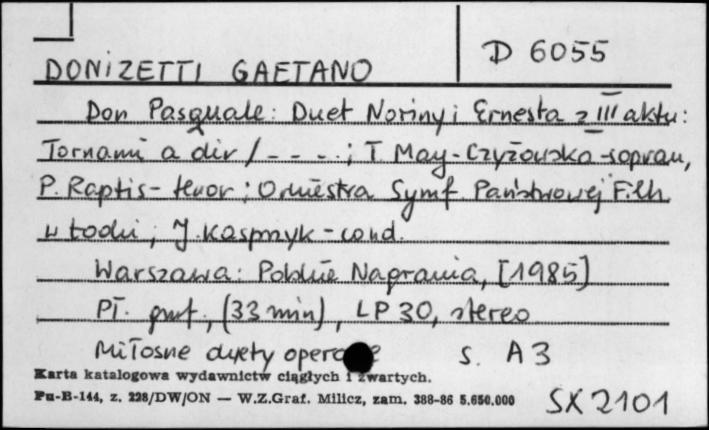 D 6055
DONIZETTI GAETANO
Don Pasquale: Duet Noriny i Ernesta z III aktu:
Tornami a dir / - - - ; T. May-Czyżowska-sopran,
P. Raptis - tenor ; Orkiestra Symf. Państwowej Filh.
w Łodzi ; J. Kasprzyk - cond.
Warszawa: Polskie Nagrania, [1985]
Pł. gmf., (33 min), LP 30, stereo
Miłosne duety operowe s. A3
Karta katalogowa wydawnictw ciągłych i zwartych.
Pu-B-144, z. 228/DW/ON — W.Z.Graf. Milicz, zam. 388-86 5.650.000
SX 2101